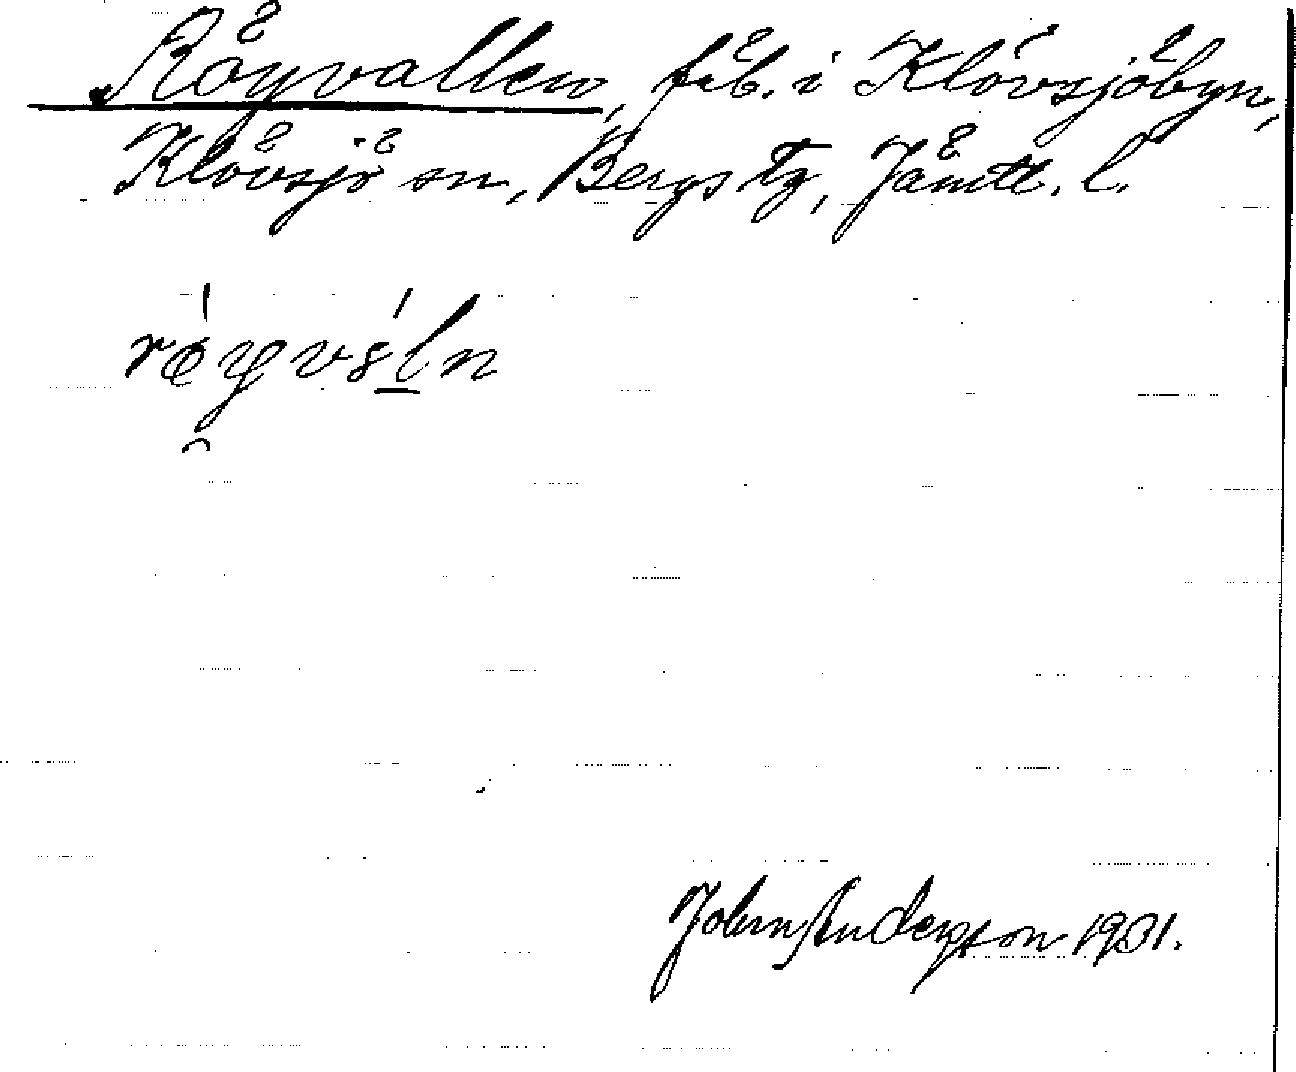 Röyvallen, fäb. i Klövsjöbyn,
Klövsjö sn, Bergs tg, Jämtl. l.
John Anderson 1931.